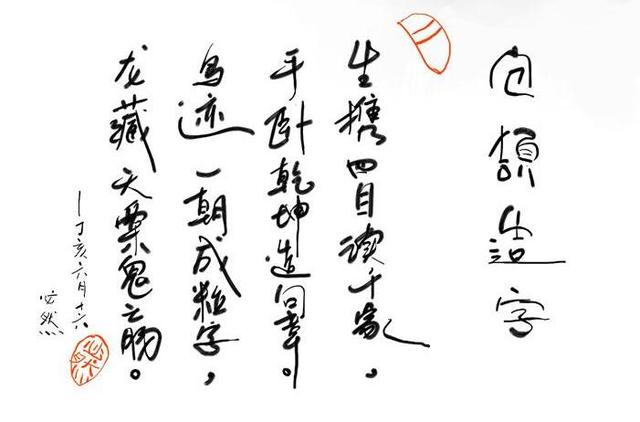 仓颉造字
生携四目读千家，
平卧乾坤造句章。
鸟迹一朝成粒字，
龙藏天粟鬼亡肠。
—丁亥六月十六
必然